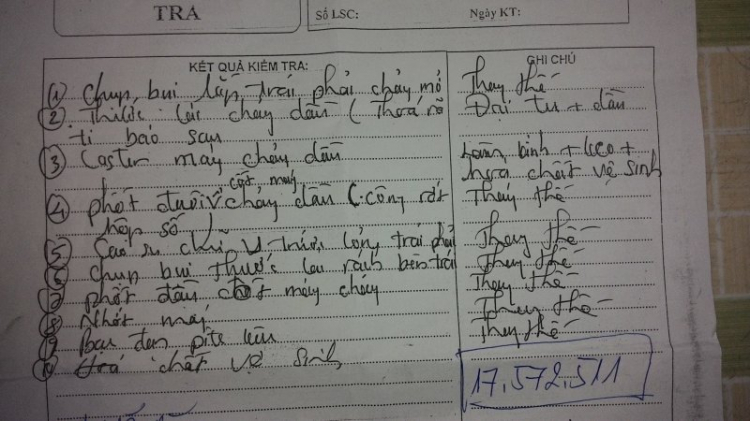 TRA
Số LSC:
Ngày KT:
KẾT QUẢ KIỂM TRA:
GHI CHÚ
(1) Chụp bụi láp trái phải chảy mỡ
Thay thế
(2) Thước lái chảy dầu (Tháo rõ
Đại tu + dầu
ti báo sau
(3) Caster máy chảy dầu
+ keo +
hóa chất vệ sinh
(4) phốt đuôi cốt máy chảy dầu (công rớt
Thay thế
hộp số)
(5) Cao su chữ U trước trái phải
Thay thế
(6) Chụp bụi thước lái rách bên trái
Thay thế
(7) phốt đầu cốt máy chảy
Thay thế
(8) Nhớt máy
Thay thế
(9) bạc đạn pite
Thay thế
(10) Hoá chất vệ sinh
17.572.511